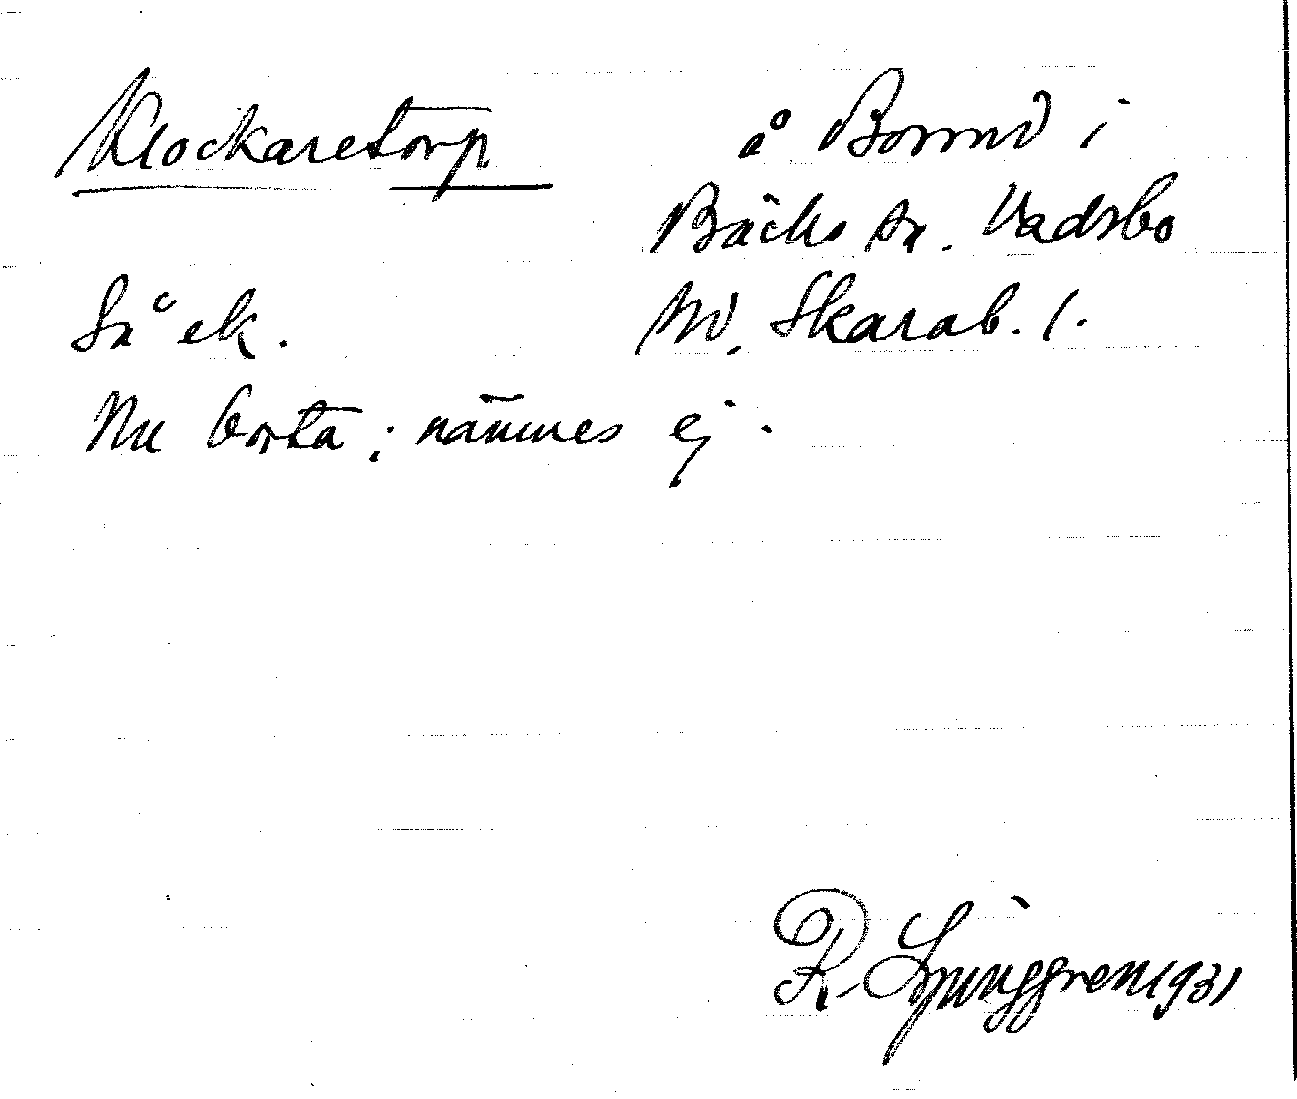 Klockaretorp
å Borrud i
Bäcks sn. Vadsbo
hd, Skarab. l.
Så ek.
Nu borta; nämnes ej.
R. Ljunggren 1931